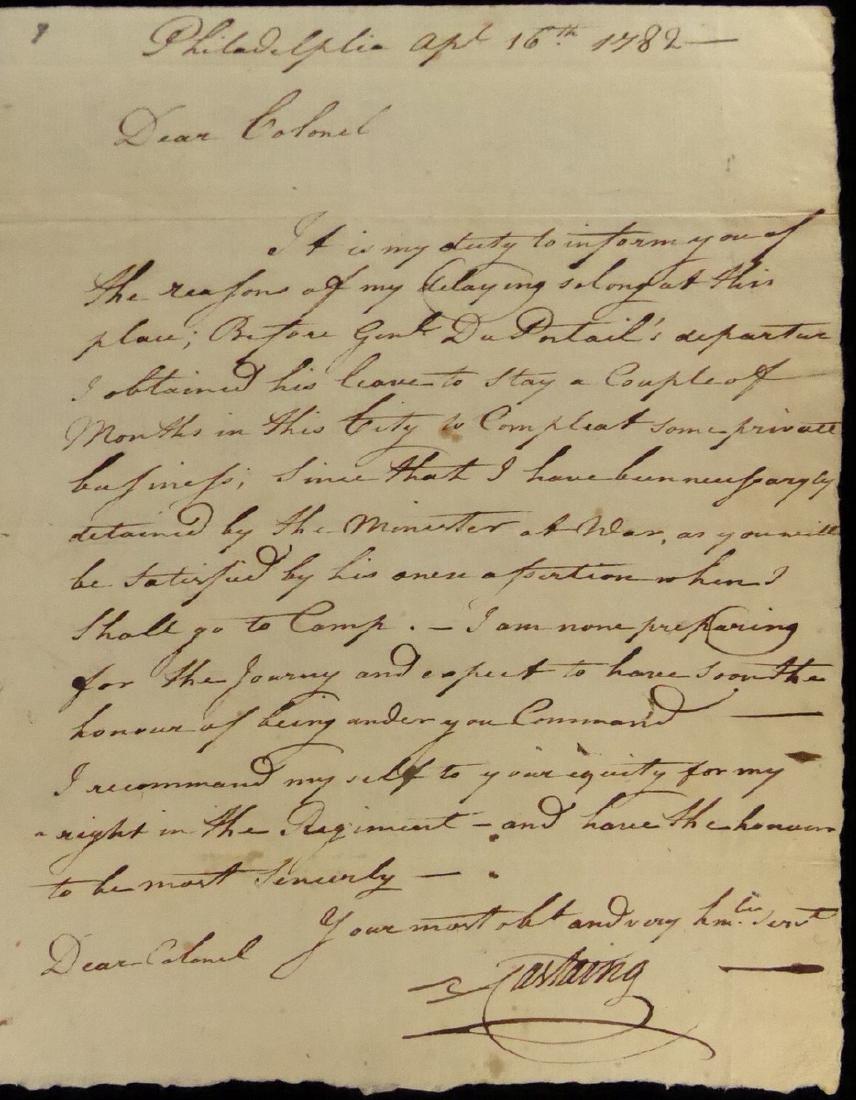 Philadelphia Apl 16th 1782 —
Dear Colonel
It is my duty to inform you of
the reasons of my delaying so long at this
place; Before Genl Du Portail's departur
I obtained his leave to stay a Couple of
Months in this City to Compleat some private
business; Since that I have been necessaryly
detained by the Minester at War, as you will
be satisfied by his onese assertion when I
shall go to Camp. — I am none preparing
for the Journy and expect to have soon the
honour of being under you Command —
I recommand my self to your equity for my
right in the Regiment — and have the honour
to be most sincerly —
Your most obt and very hm.ble Servt
Dear Colonel
Castaing